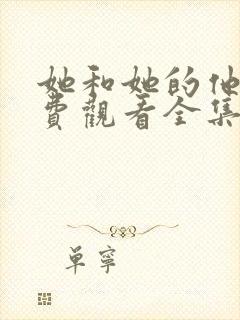 她和她的他
費觀看全集
單寧